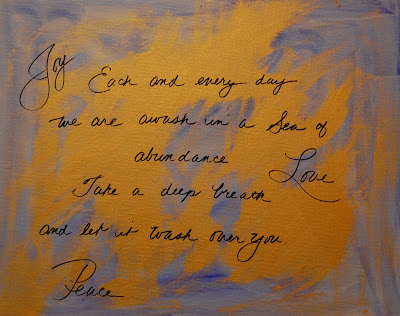 Joy
Each and every day
we are awash in a Sea of
abundance
Love
Take a deep breath
and let it wash over you.
Peace